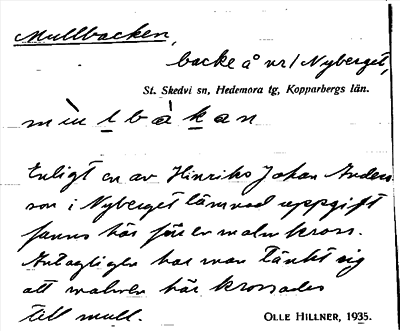 Mullbacken,
backe å nr 1 Nyberget,
St. Skedvi sn, Hedemora tg, Kopparbergs län.
mùlbàkan
Enligt en av Hinriks Johan Anders-
son i Nyberget lämnad uppgift
fanns här förr en malmkross.
Antagligen har man tänkt sig
att malmen här krossades
till mull.
OLLE HILLNER, 1935.